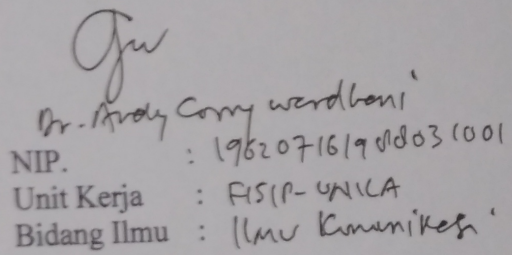 Dr. Andy Corry Wardhani
NIP. : 196207161988031001
Unit Kerja : FISIP-UNILA
Bidang Ilmu : Ilmu Komunikasi